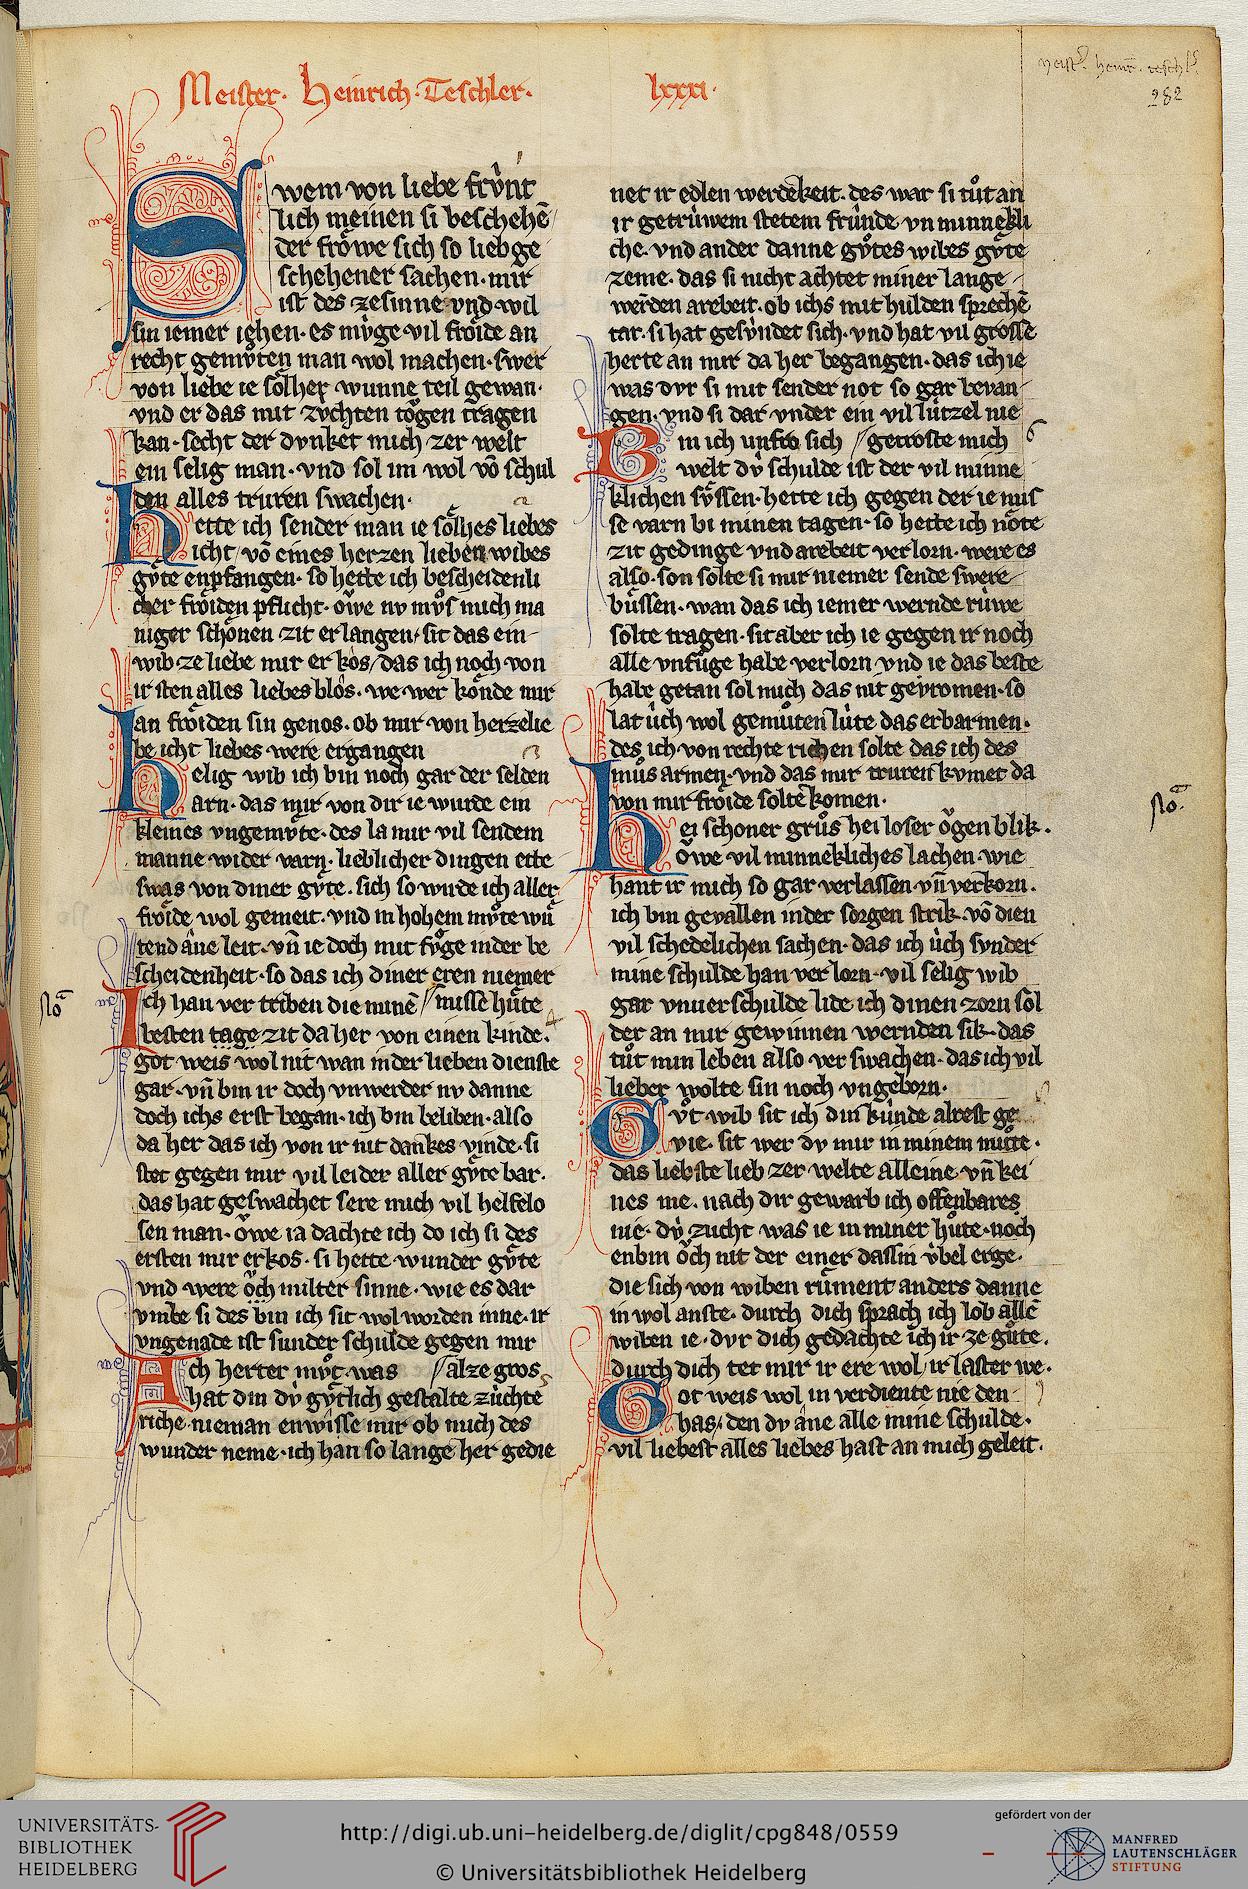 Meister · Heinrich · Teschler · lxxxi ·
282
Swem von liebe frv́nt
lich meinen si beschehē
der froͤwe sich so lieb ge
schehener sachen · mir
ist des ze sinne vnd wil
sin iemer iehen · es mv́ge vil froͤide an
recht gemv̊ten man wol machen · swer
von liebe ie soͤlher wunne teil gewan ·
vnd er das mit zvchten toͮgen tragen
kan · secht der dvnket mich zer welt
ein selig man · vnd sol im wol vō schul
den alles truren swachen ·
Hette ich sender man ie soͤlhes liebes
icht vō eines herzen lieben wibes
gv̊te enpfangen · so hette ich bescheidenli
cher froͤiden pflicht · oͮwe nv mv̊s mich ma
niger schoͤnen zit erlangen / sit das ein
wib ze liebe mir erkos / das ich noch von
ir sten alles liebes blos · we wer koͤnde mir
an froͤiden sin genos · ob mir von herzelie
be icht liebes were ergangen
Helig wib ich bin noch gar der selden
arn · das mir von dir ie wurde ein
kleines vngemv̊te · des la mir vil sendem
manne wider varn · lieblicher dingen ette
swas von diner gv̊te · sich so wurde ich aller
froͤide wol gemeit · vnd in hohem mv̊te wu̅
tend ane leit · vn̄ ie doch mit fv̊ge in der be
scheidenheit · so das ich diner eren niemer
Ich han ver triben die minē / misse huͤte
besten tage zit da her von einen kinde ·
got weis wol nit wan in der lieben dienste
gar · vn̄ bin ir doch vnwerder nv danne
doch ichs erst began · ich bin beliben · also
da her das ich von ir nit dankes vinde · si
stet gegen mir vil leider aller gv̊te bar ·
das hat geswachet sere mich vil helfelo
sen man · oͮwe ia dachte ich do ich si des
ersten mir erkos · si hette wunder gv̊te
vnd were oͮch milter sinne · wie es dar
vmbe si des bin ich sit wol worden inne · ir
vngenade ist sunder schulde gegen mir
Ach herter mv̊t · was / alze gros
hat din dv́ gv̊tlich gestalte zúchte
riche · nieman enwisse mir ob mich des
wunder neme · ich han so lange her gedie
net ir edlen werdekeit · des war si tuͦt an
ir getrúwem stetem frúnde vn minnekli
che · vnd ander danne guͦtes wibes gv̊te
zeme · das si nicht achtet miner lange
werden arebeit · ob ichs mit hulden sprechē
tar · si hat gesv́ndet sich · vnd hat vil grosse
herte an mir da her begangen · das ich ie
was dvr si mit sender not so gar bevan
gen · vnd si dar vnder ein vil lútzel nie
Bin ich unfro sich / getroste mich
welt dv́ schulde ist der vil minne
klichen sv̊ssen · hette ich gegen der ie mis
se varn bi minen tagen · so hette ich noͤte
zit gedinge vnd arebeit verlorn · were es
also · son solte si mir niemer sende swere
buͤssen · wan das ich iemer wernde rúwe
solte tragen · sit aber ich ie gegen ir noch
alle vnfuͦge habe verlorn vnd ie das beste
habe getan sol mich das nit gevromen · so
lat úch wol gemuͦten lúte das erbarmen ·
des ich von rechte richen solte das ich des
muͦs armen · vnd das mir truren kvmet da
von mir froide solte komen ·
Hei schoner gruͦs hei loser oͮgen blik ·
oͮwe vil minnekliches lachen · wie
hant ir mich so gar verlassen vn̄ verkorn ·
ich bin gevallen in der sorgen strik · vō dien
vil schedelichen sachen · das ich úch svnder
mine schulde han ver lorn · vil selig wib
gar vnuerschulde lide ich dinen zorn sol
der an mir gewinnen wernden sik · das
tuͦt min leben also ver swachen · das ich vil
lieber wolte sin noch vngeborn ·
Gvͦt wib sit ich din kúnde alrest ge
vie · sit wer dv mir in minem muͦte ·
das liebste lieb zer welte alleine vn̄ kei
nes me · nach dir gewarb ich offenbares
nie · dv́ zucht was ie in miner huͦte · noch
enbin oͮch nit der einer das sin v́bel erge ·
die sich von wiben ruͤment anders danne
in wol anste · durch dich sprach ich lob allē
wiben ie · dvr dich gedachte ich ir ze guͦte ·
durch dich tet mir ir ere wol / ir laster we ·
Got weis wol in verdiente nie den
has / den dv ane alle mine schulde ·
vil liebest alles liebes hast an mich geleit ·
UNIVERSITÄTS-
BIBLIOTHEK
HEIDELBERG
http://digi.ub.uni-heidelberg.de/diglit/cpg848/0559
© Universitätsbibliothek Heidelberg
gefördert von der
MANFRED
LAUTENSCHLÄGER
STIFTUNG